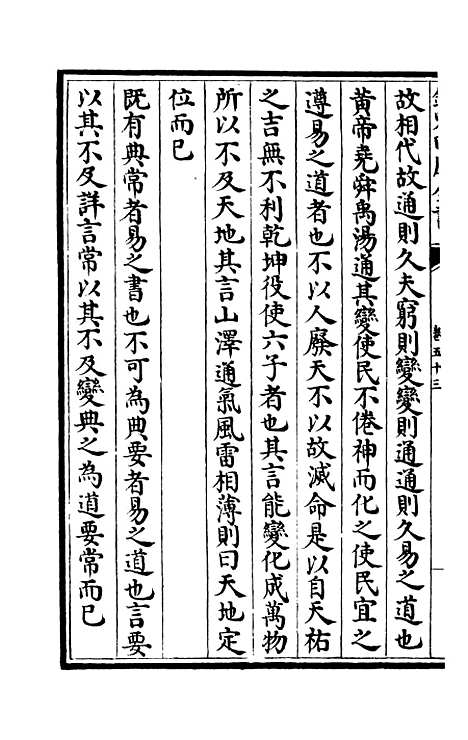 故相代故通則久夫窮則變變則通通則久易之道也
黃帝堯舜禹湯通其變使民不倦神而化之使民宜之
遵易之道者也不以人廢天不以故滅命是以自天祐
之吉無不利乾坤役使六子者也其言能變化成萬物
所以不及天地其言山澤通氣風雷相薄則曰天地定
位而已
既有典常者易之書也不可為典要者易之道也言要
以其不及詳言常以其不及變典之為道要常而已
卷五十三